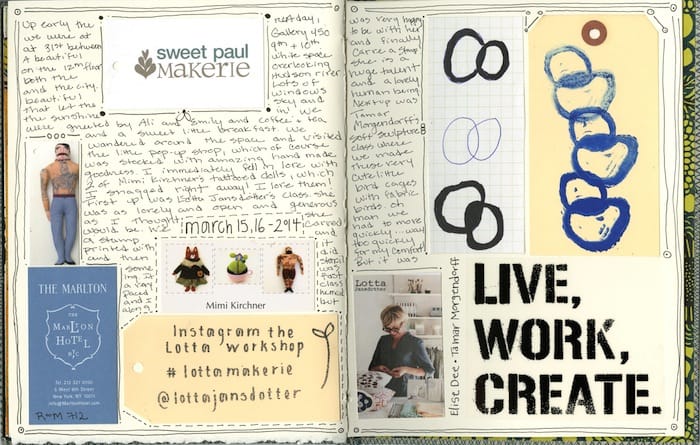 Up early the
we were at
at 31st between
A beautiful
on the 12th floor
both the
and the city.
beautiful
that let the
the sunshine
sweet paul
MAKERIE
next day!
Gallery 450
9th + 10th
white space
overlooking
Hudson river
Lots of
windows
sky and
in! We
were greeted by Ali and Emily and coffee + tea
and a sweet little breakfast. We
wandered around the space and visited
the little pop-up shop, which of course
was stocked with amazing hand made
goodness. I immediately fell in love with
2 of Mimi Kirchner's tattooed dolls, which
I snagged right away! I love them!
First up was Lotta Jansdotter's class. she
was as lovely and open and generous
as I thought she
would be. We
march 15, 16 - 2014
carved
a stamp
and
printed with it
and then
some
Mimi Kirchner
THE MARLTON
THE
MARLTON
HOTEL
NYC
Tel. 212 321 0100
5 West 8th Street
New York, NY 10011
info@MarltonHotel.com
Room 712
Instagram the
Lotta workshop
# lottamakerie
@lottajansdotter
was very happy
to be with her
and finally
Carve a stamp!
she is a
huge talent
and a lovely
human being
Next up was
Tamar
Morgendorff's
soft sculpture
class where
we made
these very
cute little
bird cages
with fabric
birds. oh
man we
had to move
quickly... way
too quickly
for my comfort
But it was
Lotta
Jansdotter
Elise Dee • Tamar Morgendorff
LIVE,
WORK,
CREATE.